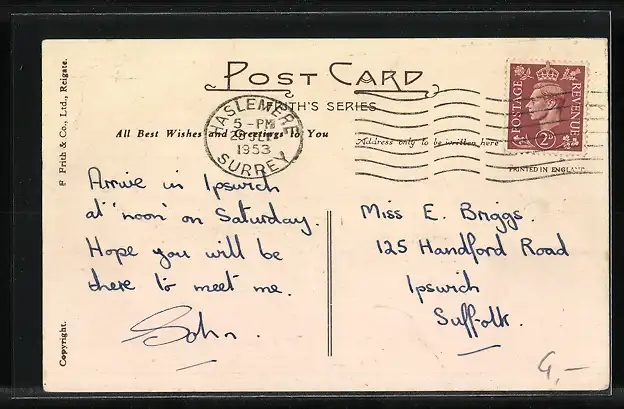 POST CARD
FRITH'S SERIES
HASLEMERE
5-PM
1953
SURREY
POSTAGE
REVENUE
2D
All Best Wishes and Greetings To You
Address only to be written here
PRINTED IN ENGLAND
F. Frith & Co., Ltd., Reigate.
Copyright.
Arrive in Ipswich
at 'noon' on Saturday.
Hope you will be
there to meet me.
John.
Miss E. Briggs.
125 Handford Road
Ipswich
Suffolk.
G,-